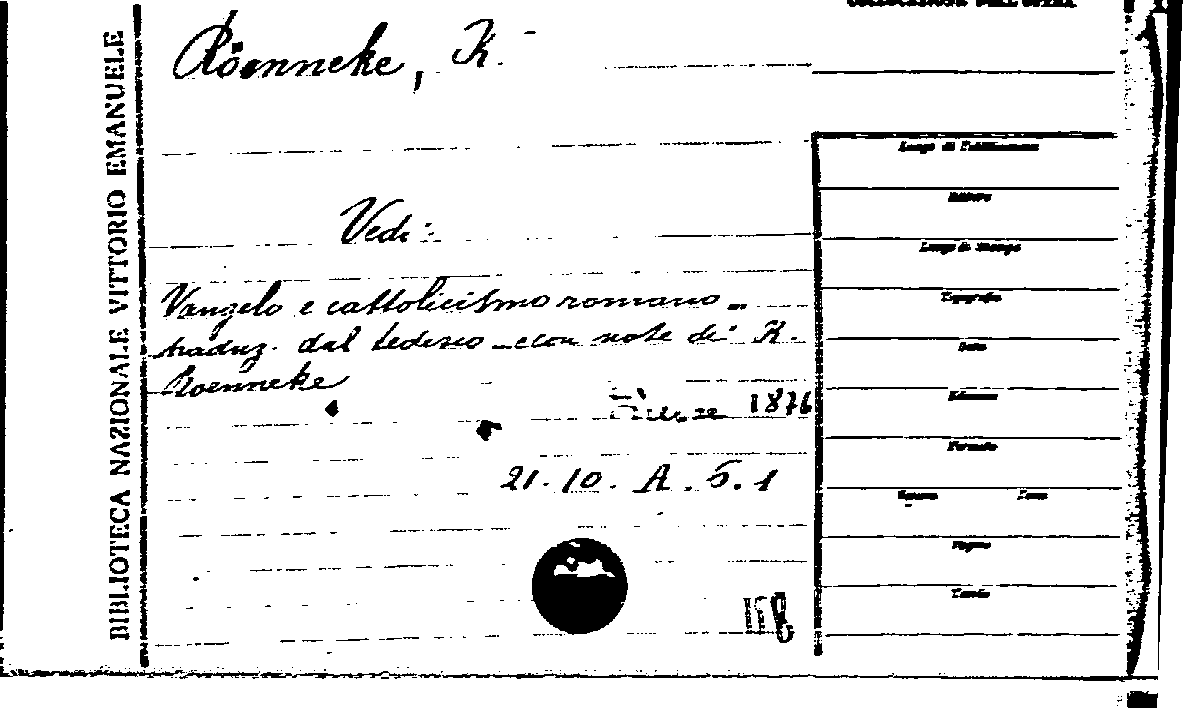 COLLOCAZIONE DELL'OPERA
BIBLIOTECA NAZIONALE VITTORIO EMANUELE
Röenneke, K.
Vedi:
Vangelo e cattolicismo romano –
traduz. dal tedesco – con note di K.
Roenneke
Firenze 1876
21. 10. A. 5. 1
118
Luogo di Pubblicazione
Editore
Luogo di Stampa
Tipografia
Data
Edizione
Formato
Volume Tomo
Pagine
Tavole